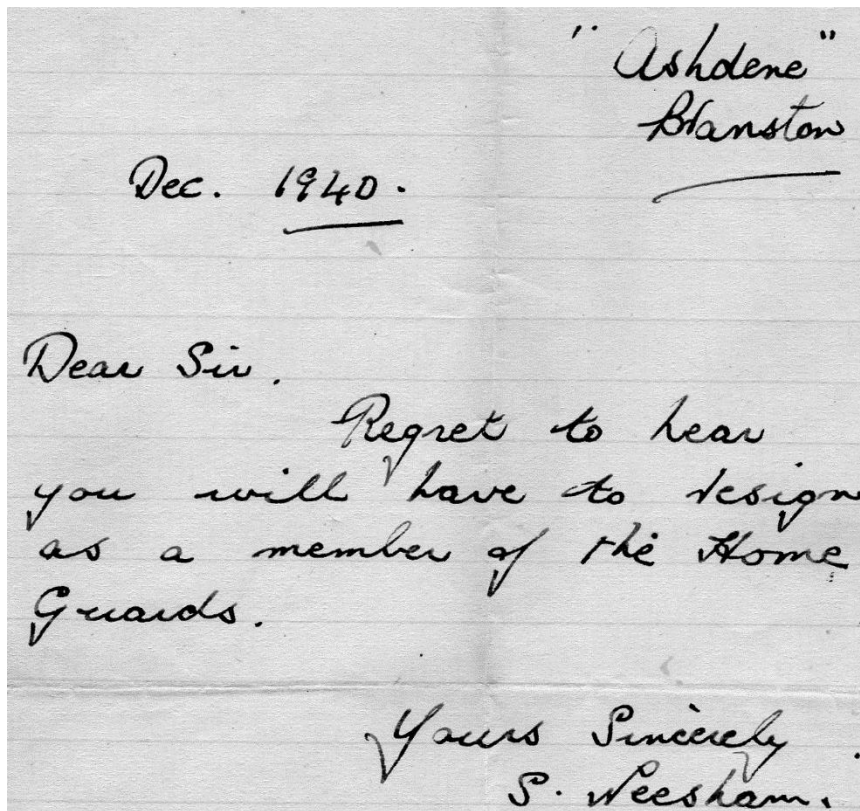 "Ashdene"
Branston
Dec. 1940.
Dear Sir.
Regret to hear
you will have to resign
as a member of the Home
Guards.
Yours Sincerely
S.